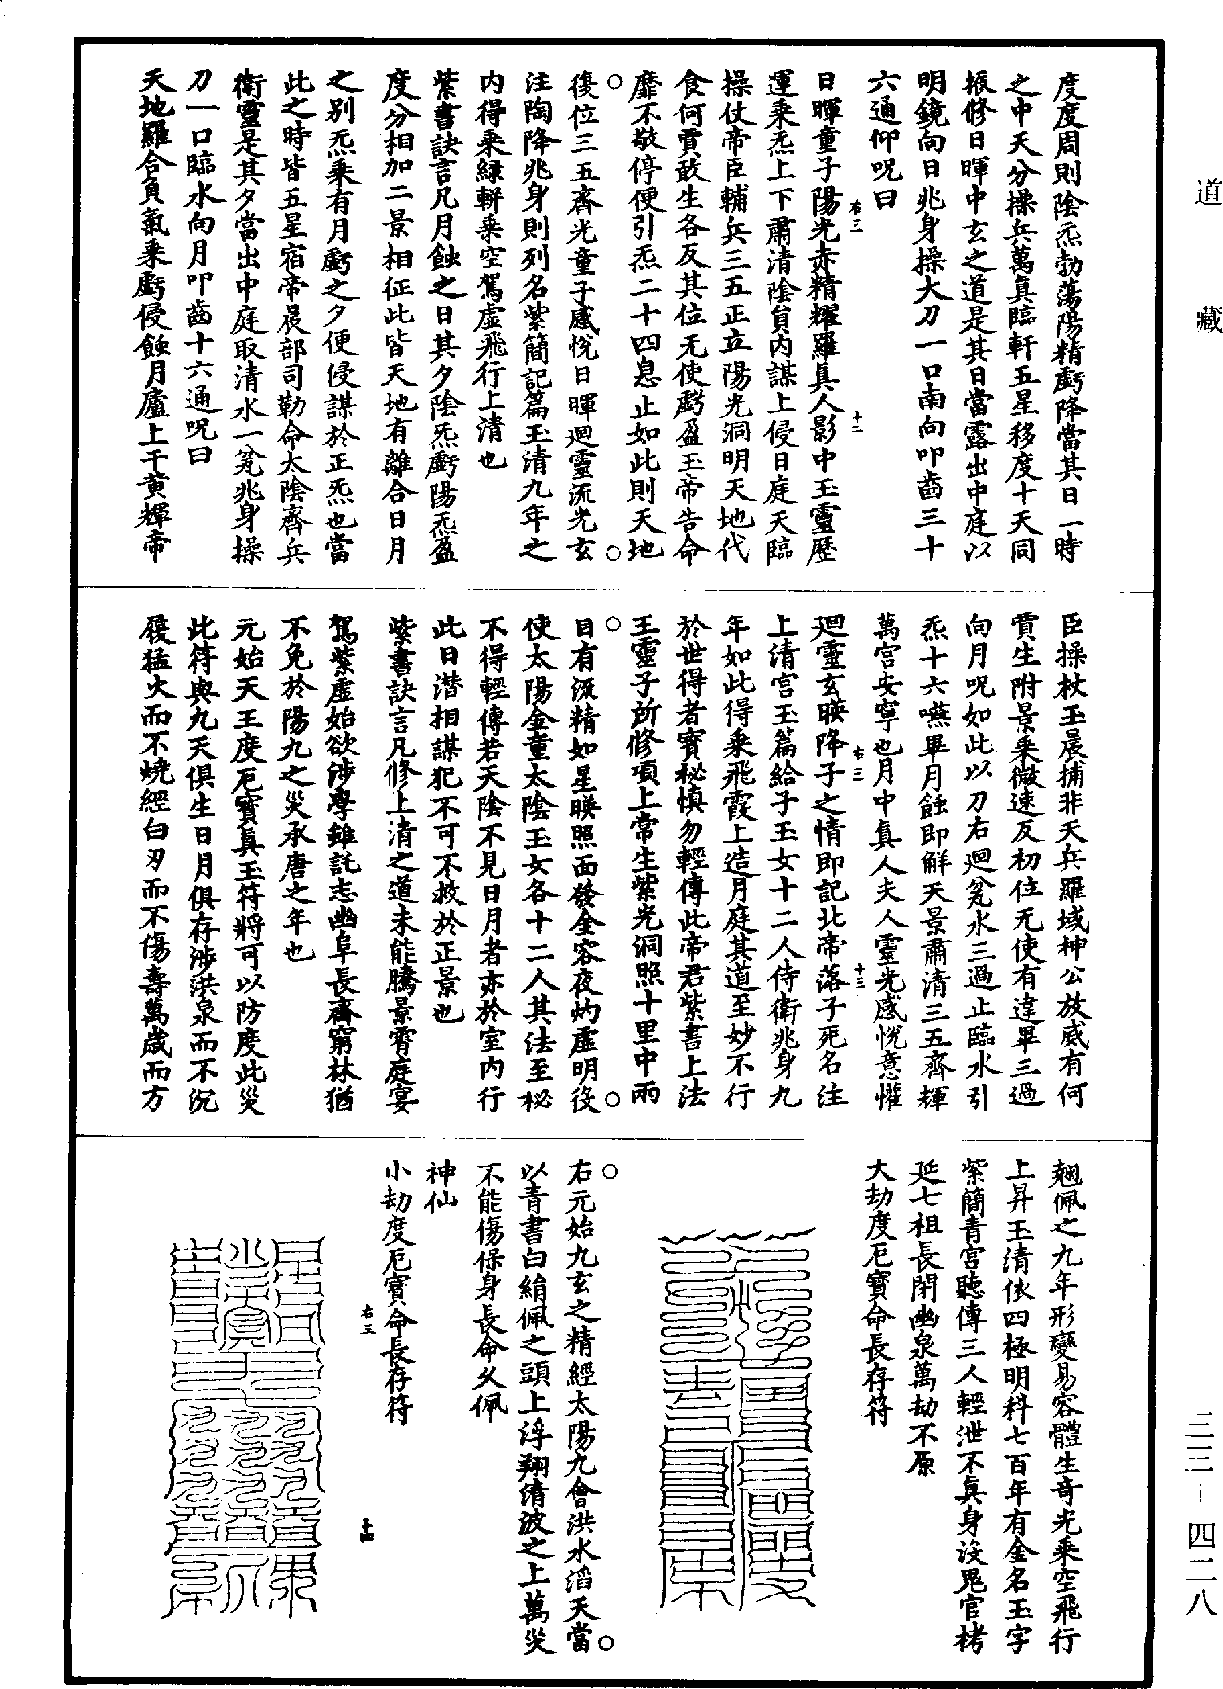 道藏
度度周則陰炁勃蕩陽精虧降當其日一時
之中天分操兵萬真臨軒五星移度十天同
振修日暉中玄之道是其日當露出中庭以
明鏡向日兆身操大刀一口南向叩齒三十
六通仰呪曰
右三 十二
日暉童子陽光赤精耀羅真人影中玉靈歷
運乘炁上下肅清陰負內謀上侵日庭天臨
操仗帝臣輔兵三五正立陽光洞明天地代
食何賈敢生各反其位无使虧盈玉帝告命
靡不敬停便引炁二十四息止如此則天地
復位三五齊光童子感悅日暉迴靈流光玄
注陶降兆身則列名紫簡記篇玉清九年之
內得乘綠軿乘空駕虛飛行上清也
紫書訣言凡月蝕之日其夕陰炁虧陽炁盈
度分相加二景相征此皆天地有離合日月
之別炁乘有月虧之夕便侵謀於正炁也當
此之時皆五星宿帝晨部司勒命太陰齊兵
衛靈是其夕當出中庭取清水一瓮兆身操
刀一口臨水向月叩齒十六通呪曰
天地羅合負氣乘虧侵蝕月廬上干黃輝帝
臣操杖玉晨捕非天兵羅域神公放威有何
賈生附景乘微速反初位无使有違畢三過
向月呪如此以刀右迴瓮水三過止臨水引
炁十六嚥畢月蝕即解天景肅清三五齊輝
萬宮安寧也月中真人夫人靈光感悅意懽
右三 十三
迴靈玄暎降子之情即記北帝落子死名注
上清宮玉篇給子玉女十二人侍衛兆身九
年如此得乘飛霞上造月庭其道至妙不行
於世得者寶秘慎勿輕傳此帝君紫書上法
王靈子所修項上常生紫光洞照十里中兩
目有流精如星暎照面發金容夜灼虛明役
使太陽金童太陰玉女各十二人其法至秘
不得輕傳若天陰不見日月者亦於室內行
此日潛相謀犯不可不救於正景也
紫書訣言凡修上清之道未能騰景霄庭宴
駕紫虛始欲涉學錐託志幽阜長齋窮林猶
不免於陽九之災承唐之年也
元始天王度厄寶真玉符將可以防度此災
此符與九天俱生日月俱存涉洪泉而不沉
履猛火而不燒經白刃而不傷壽萬歲而方
翹佩之九年形變易容體生奇光乘空飛行
上昇玉清依四極明科七百年有金名玉字
紫簡青宮聽傳三人輕泄不真身沒鬼官栲
延七祖長閉幽泉萬劫不原
大劫度厄寶命長存符
右元始九玄之精經太陽九會洪水滔天當
以青書白絹佩之頭上浮翔清波之上萬災
不能傷保身長命久佩
神仙
小劫度厄寶命長存符
右三 十四
三三-四二八